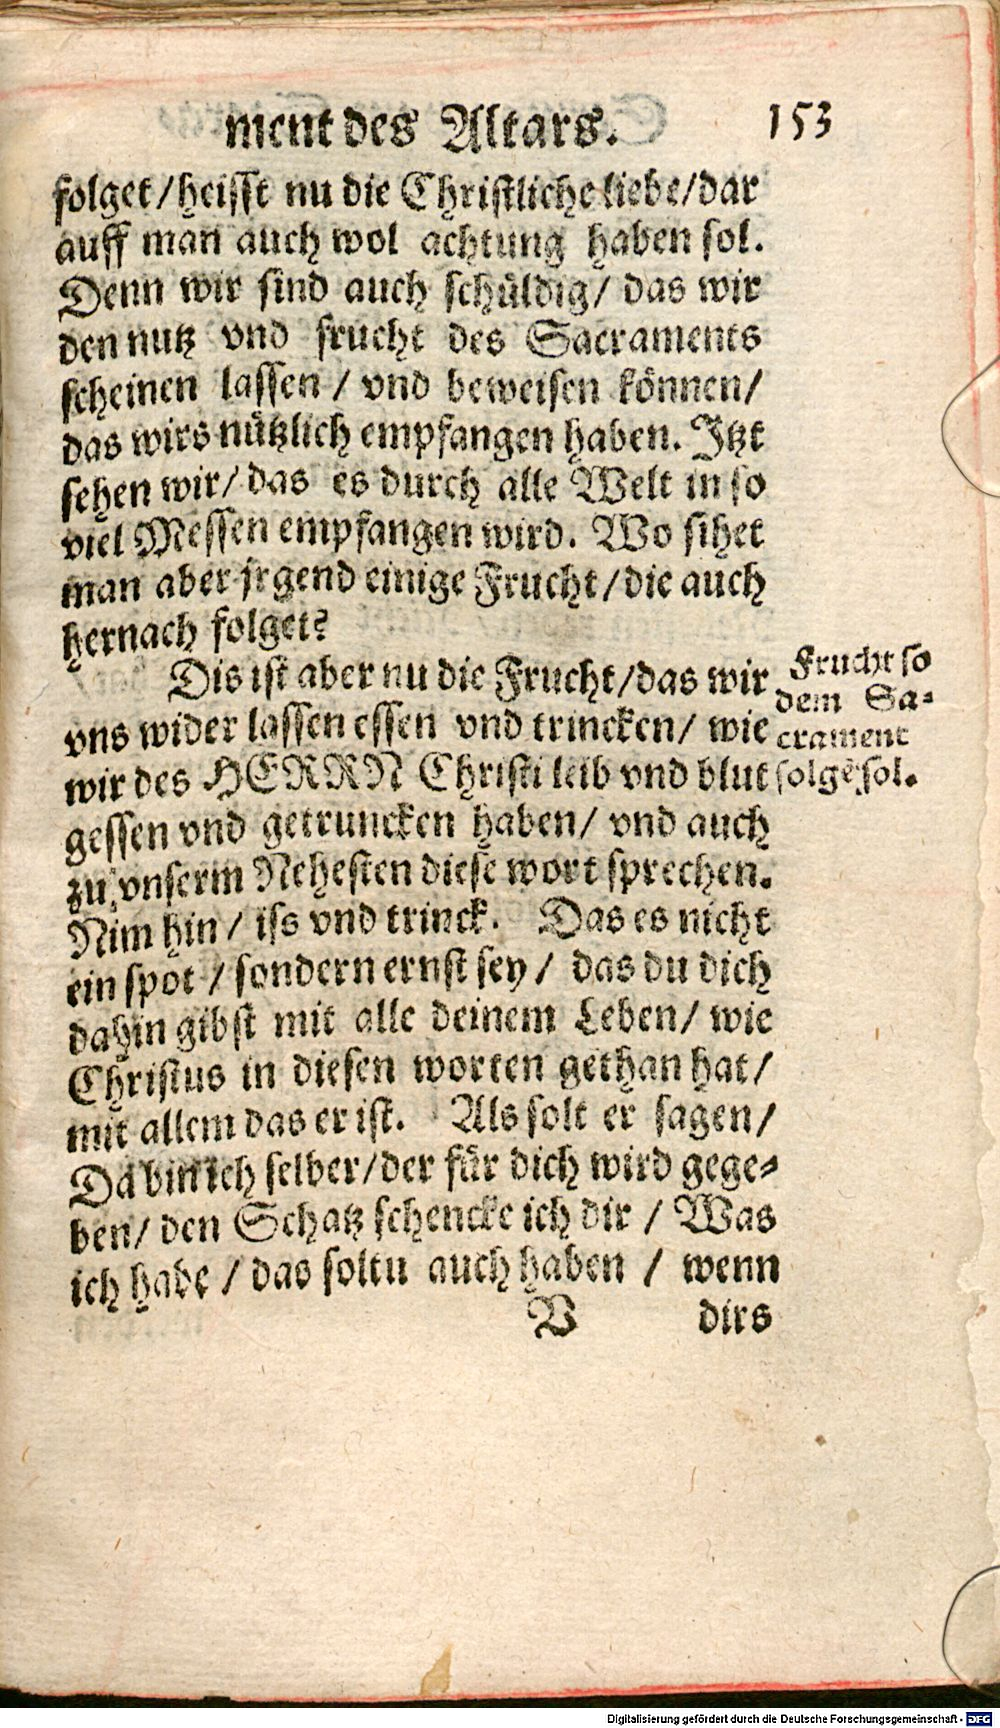 ment des Altars. 153
folget/heisst nu die Christliche liebe/dar
auff man auch wol achtung haben sol.
Denn wir sind auch schüldig/ das wir
den nutz vnd frucht des Sacraments
scheinen lassen / vnd beweisen können/
das wirs nützlich empfangen haben. Itzt
sehen wir/ das es durch alle Welt in so
viel Messen empfangen wird. Wo sihet
man aber jrgend einige Frucht/die auch
hernach folget?
Dis ist aber nu die Frucht/das wir
vns wider lassen essen vnd trincken/ wie
wir des HERRN Christi leib vnd blut
gessen vnd getruncken haben/ vnd auch
zu vnserm Nehesten diese wort sprechen.
Nim hin/ iss vnd trinck. Das es nicht
ein spot / sondern ernst sey/ das du dich
dahin gibst mit alle deinem Leben/ wie
Christus in diesen worten gethan hat/
mit allem das er ist. Als solt er sagen/
Da bin ich selber/der für dich wird gege-
ben/ den Schatz schencke ich dir / Was
ich habe / das soltu auch haben / wenn
V dirs
Frucht so
dem Sa-
crament
folgẽ sol.
Digitalisierung gefördert durch die Deutsche Forschungsgemeinschaft - DFG